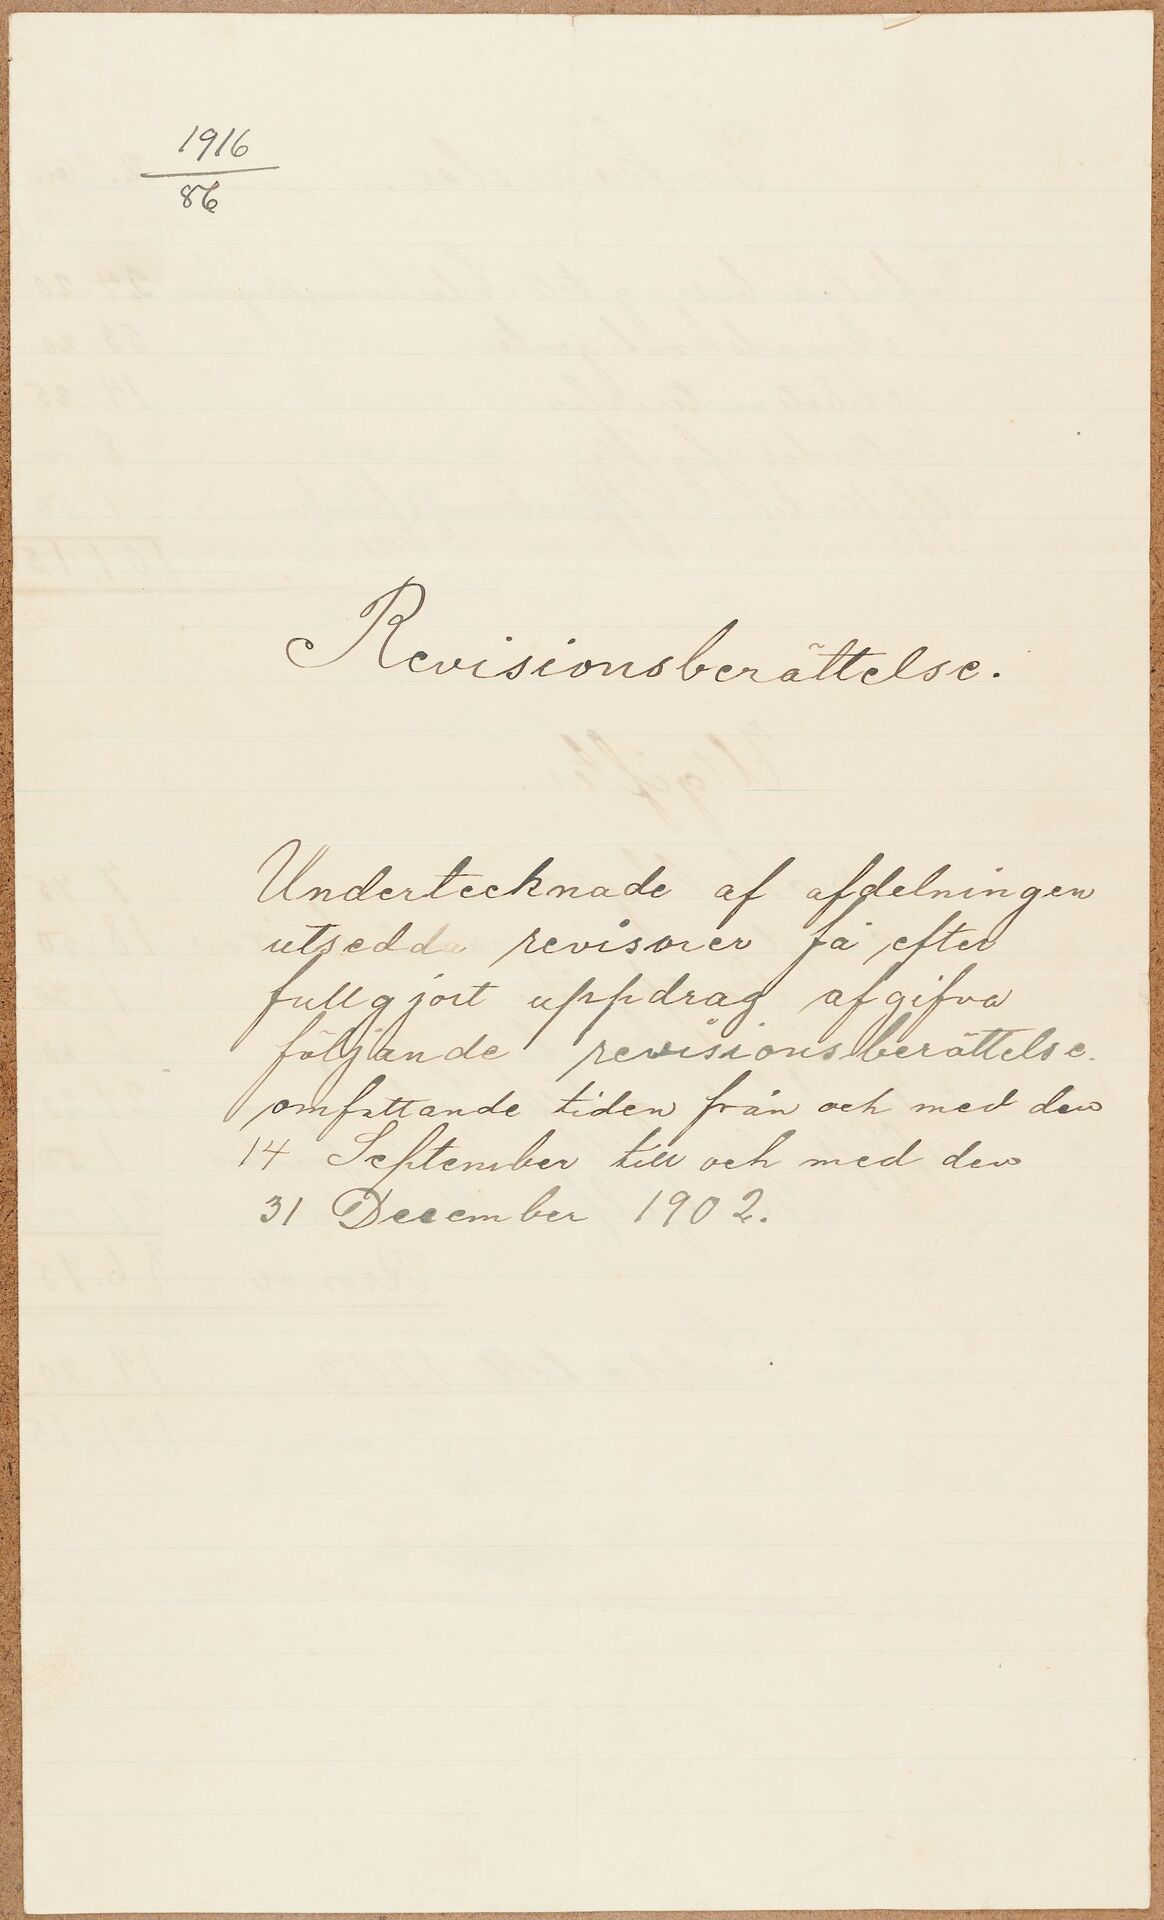 1916
86
Revisionsberättelse.
Undertecknade af afdelningen
utsedda revisorer få efter
fullgjort uppdrag afgifva
följande revisionsberättelse.
omfattande tiden från och med den
14 September till och med den
31 December 1902.